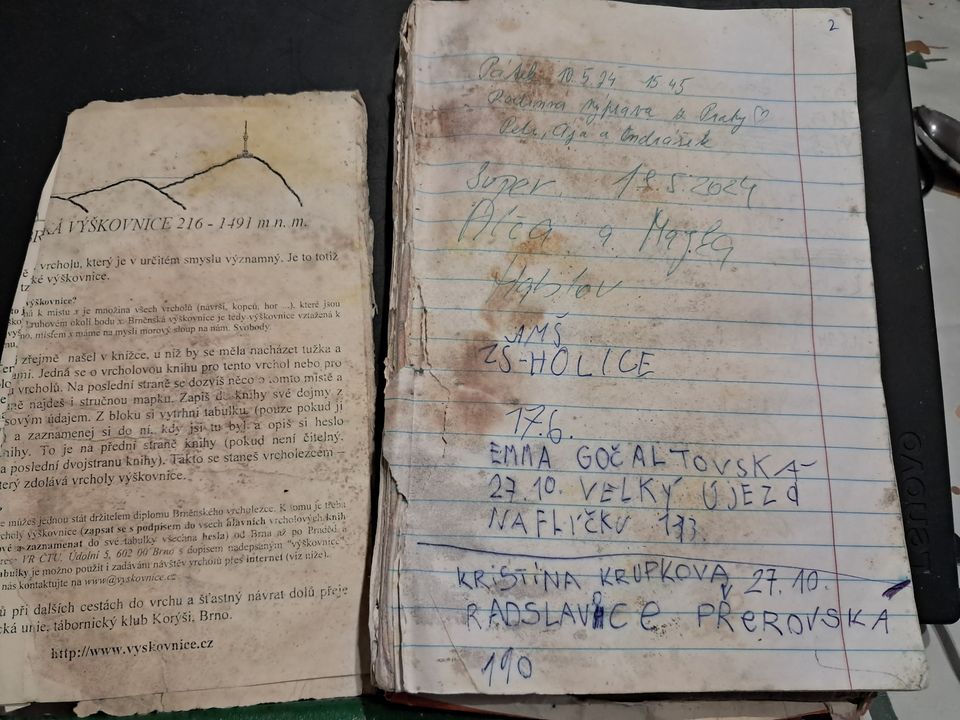 KÁ VÝŠKOVNICE 216 - 1491 m n. m.
vrcholu, který je v určitém smyslu významný. Je to totiž
ké výškovnice.
výškovnice?
ná k místu x je množina všech vrcholů (návrší, kopců, hor ...), které jsou
kruhovém okolí bodu x. Brněnská výškovnice je tedy výškovnice vztažená k
no, místem x máme na mysli morový sloup na nám. Svobody.
i zřejmě našel v knížce, u níž by se měla nacházet tužka a
ami. Jedná se o vrcholovou knihu pro tento vrchol nebo pro
vrcholů. Na poslední straně se dozvíš něco o tomto místě a
ně najdeš i stručnou mapku. Zapiš do knihy své dojmy z
sovým údajem. Z bloku si vytrhni tabulku (pouze pokud ji
a zaznamenej si do ní, kdy jsi tu byl a opiš si heslo
knihy. To je na přední straně knihy (pokud není čitelný,
a poslední dvojstranu knihy). Takto se staneš vrcholezcem –
terý zdolává vrcholy výškovnice.
e můžeš jednou stát držitelem diplomu Brněnského vrcholezce. K tomu je třeba
rcholy výškovnice (zapsat se s podpisem do všech hlavních vrcholových knih
ové a zaznamenat do své tabulky všechna hesla) od Brna až po Praděd a
VR ČTU, Údolní 5, 602 00 Brno s dopisem nadepsaným "výškovnice".
abulky je možno použít i zadávání návštěv vrcholů přes internet (viz níže).
nás kontaktujte na www@vyskovnice.cz
ů při dalších cestách do vrchu a šťastný návrat dolů přeje
cká unie, tábornický klub Korýši, Brno.
http://www.vyskovnice.cz
2
Pátek 10.5.24 15:45
Rodinná výprava z Prahy ♡
Petr, Ája a Ondrášek
Super 17.5.2024
a
AMŠ
ZŠ-HOLICE
17.6.
EMMA GOČALTOVSKA-
27.10. VELKÝ ÚJEZD
NAFLÍČKU 173
KRISTÍNA KRUPKOVA 27.10.
RADSLAVICE PŘEROVSKA
190
lenovo